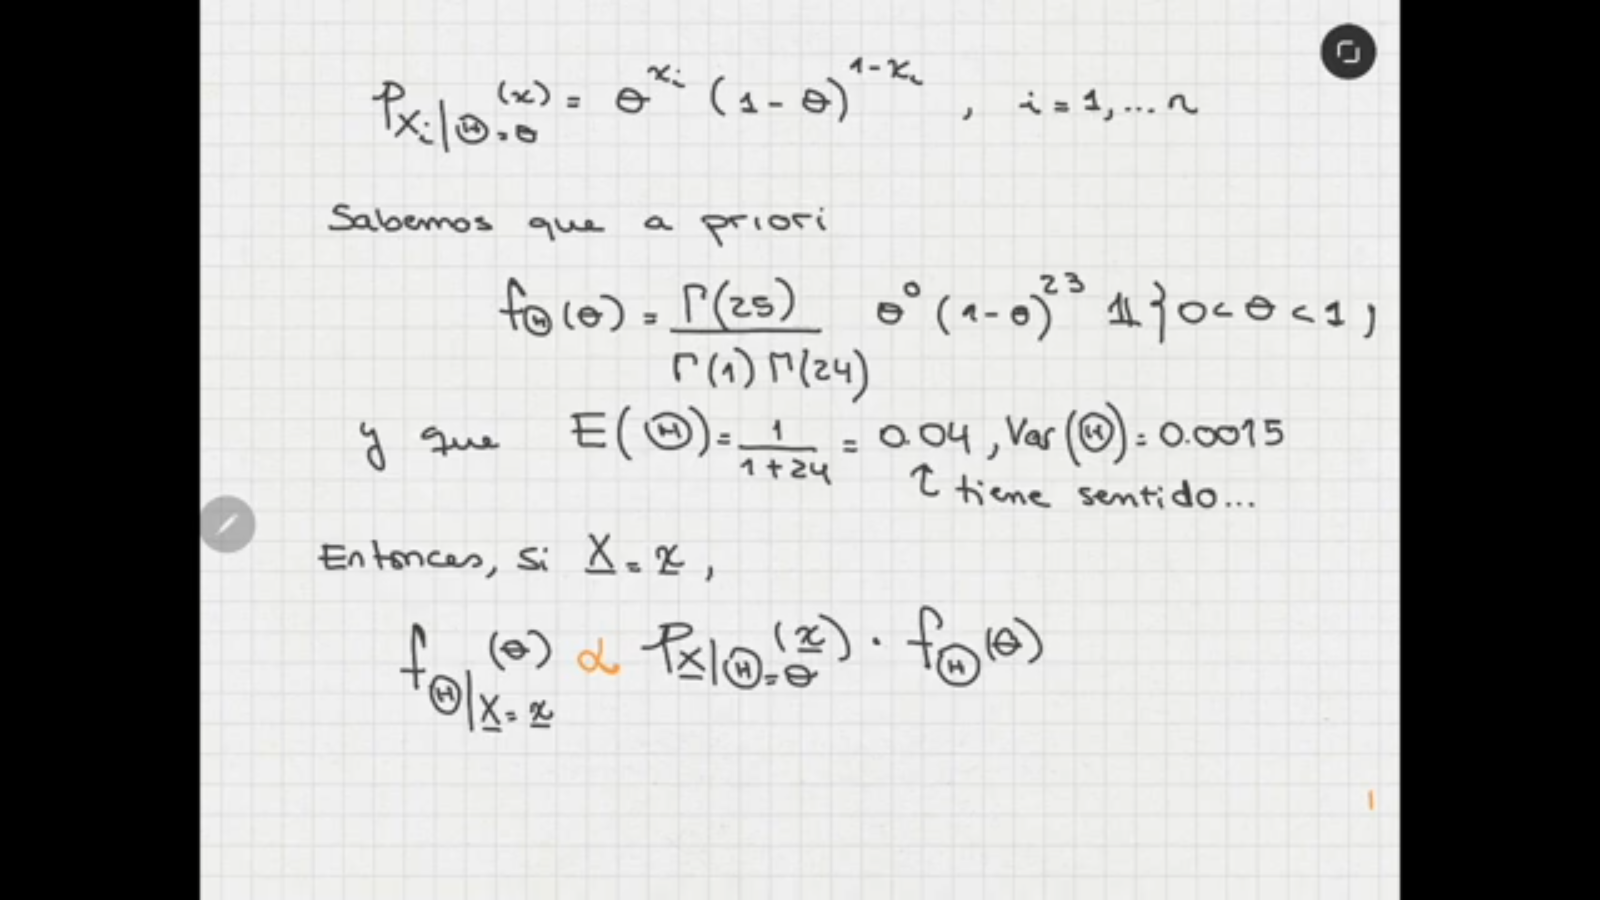 P_{X_i|Θ=θ}(x) = θ^{x_i} (1-θ)^{1-x_i} , i = 1, ... n
Sabemos que a priori
f_Θ(θ) = Γ(25) / Γ(1) Γ(24) θ^0 (1-θ)^{23} 𝟙}0<θ<1,
y que E(Θ) = 1/(1+24) = 0.04 , Var(Θ) = 0.0015
↑ tiene sentido...
Entonces, si X = x ,
f_{Θ|X=x}(θ) α P_{X|Θ=θ}(x) · f_Θ(θ)
1